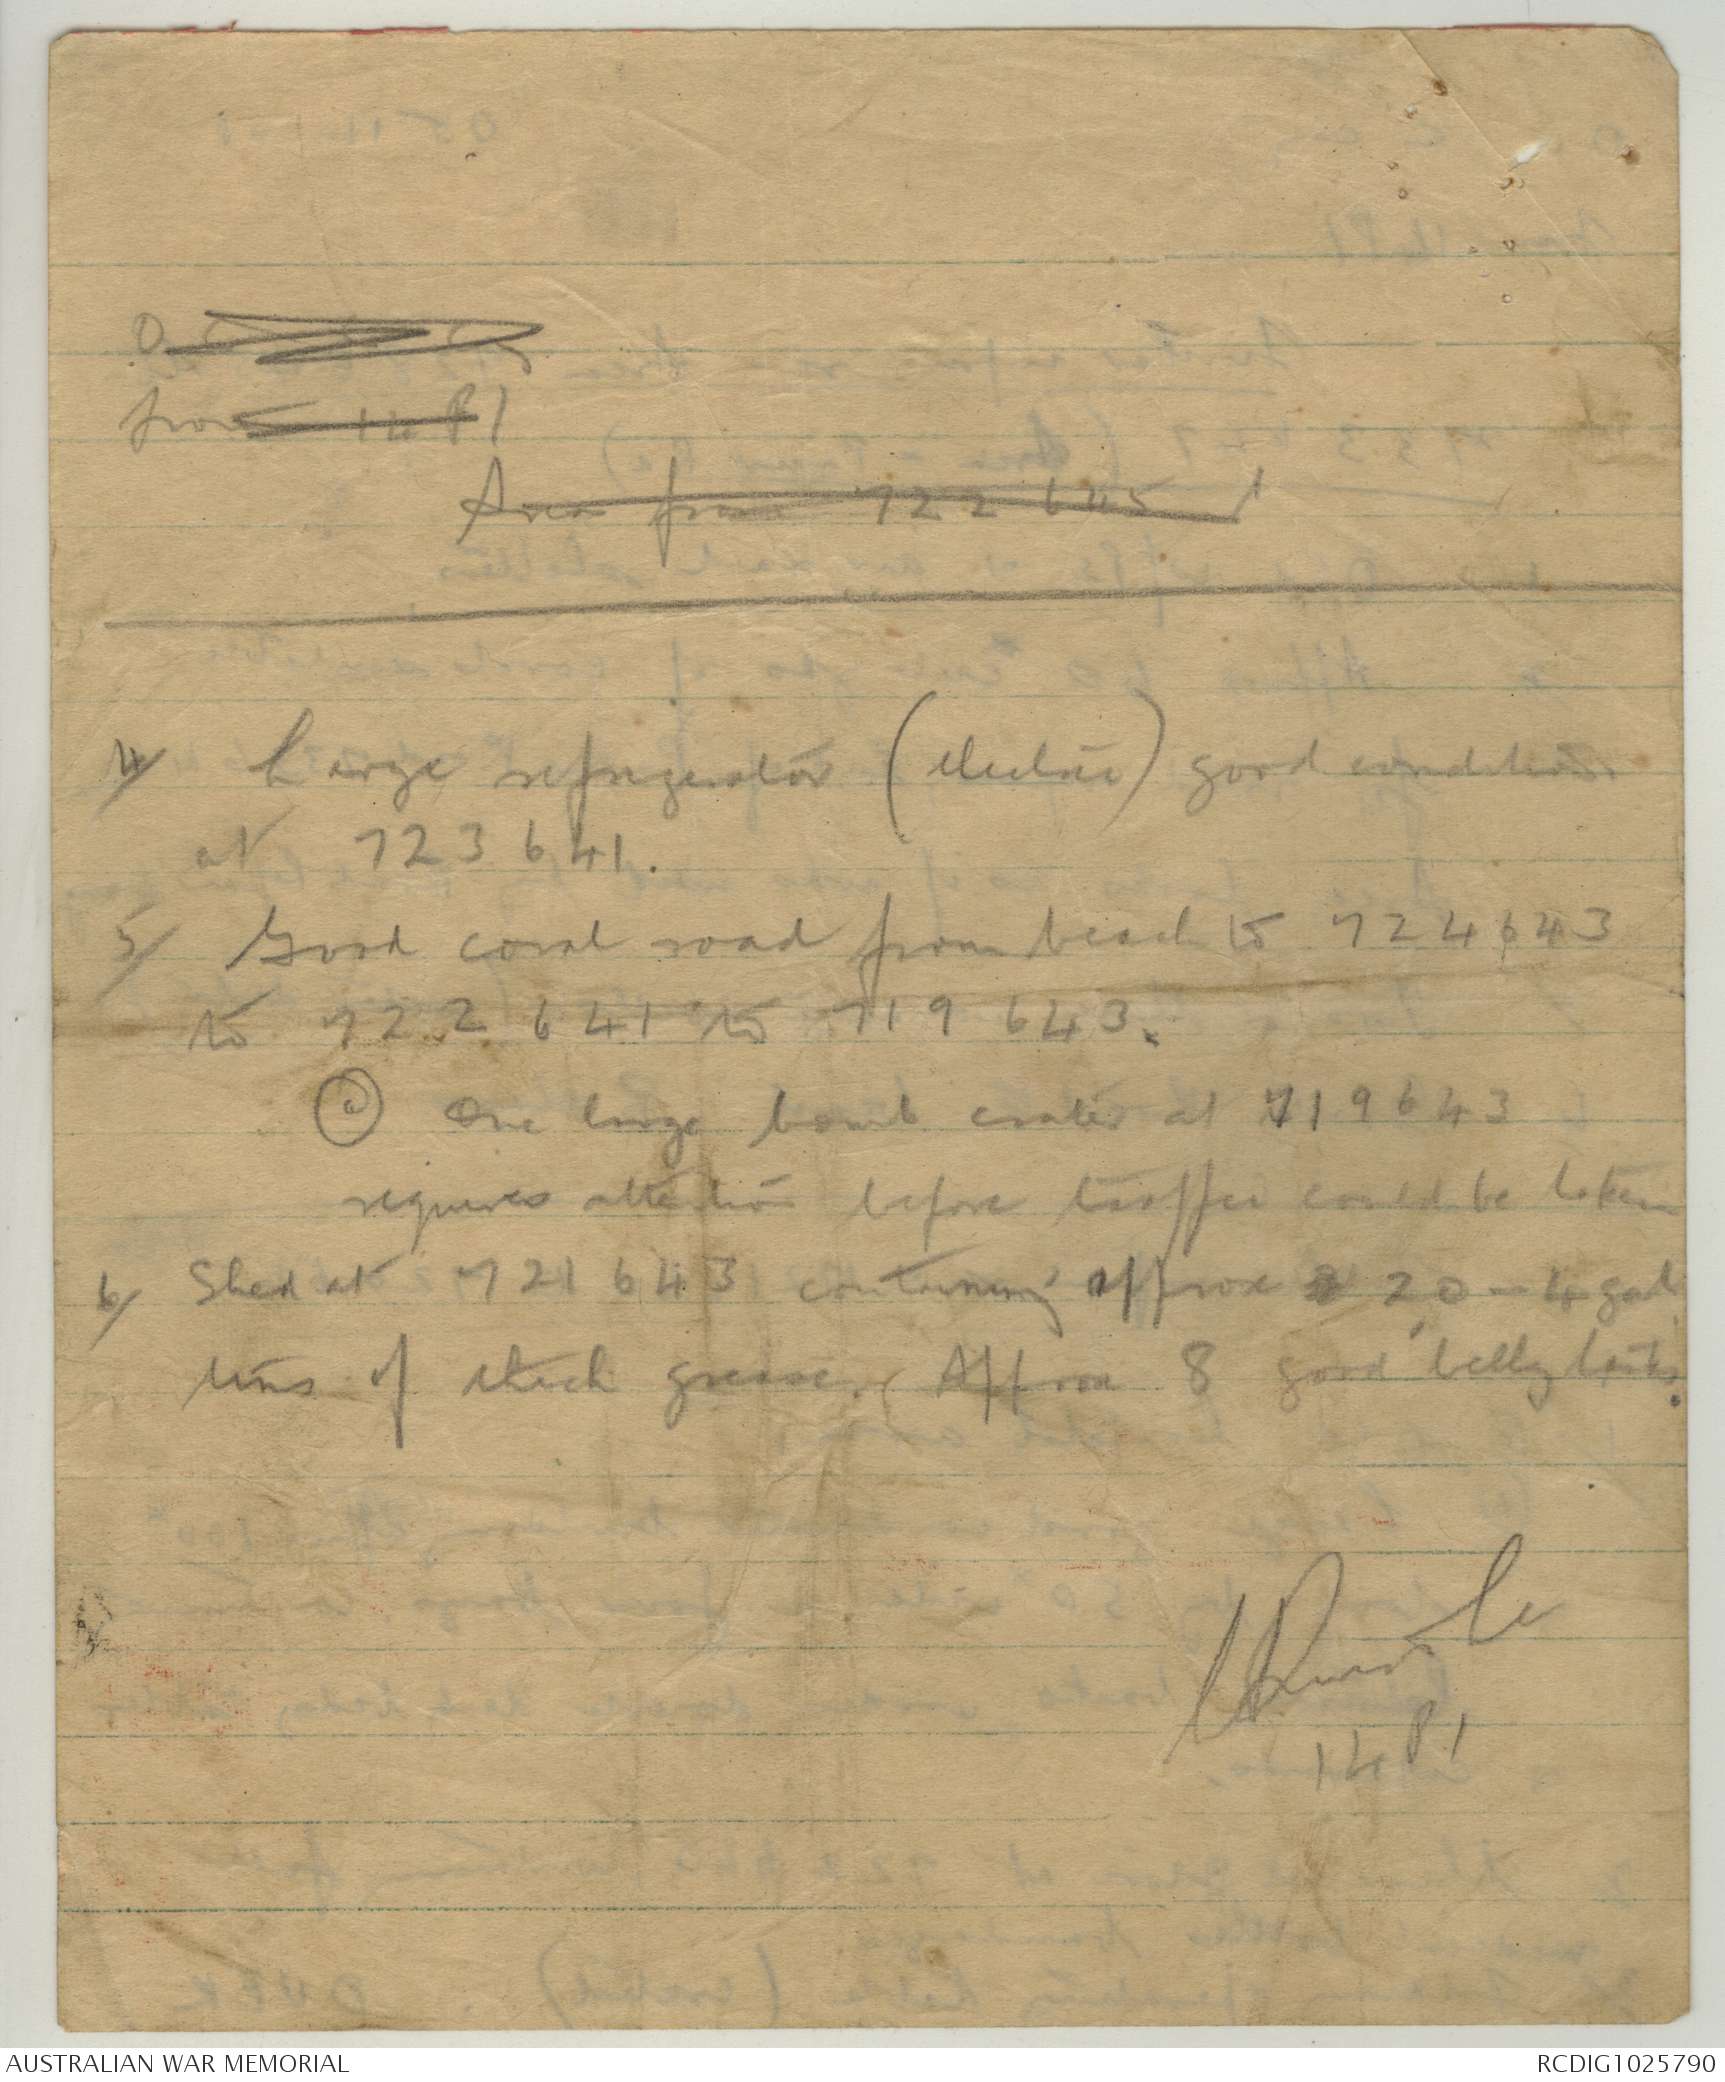 from 14 Pl
Area from 722 645
4/ Large refrigerator (electric) good condition
at 723641.
5/ Good coral road from beach to 724643
to 722641 to 719643.
a One large bomb crater at 719643
requires attention before traffic could be taken
6/ Shed at 721643 containing approx 20 - 4 gal
tins of thick grease. Approx 8 good belly tanks.
14 Pl
AUSTRALIAN WAR MEMORIAL
RCDIG1025790